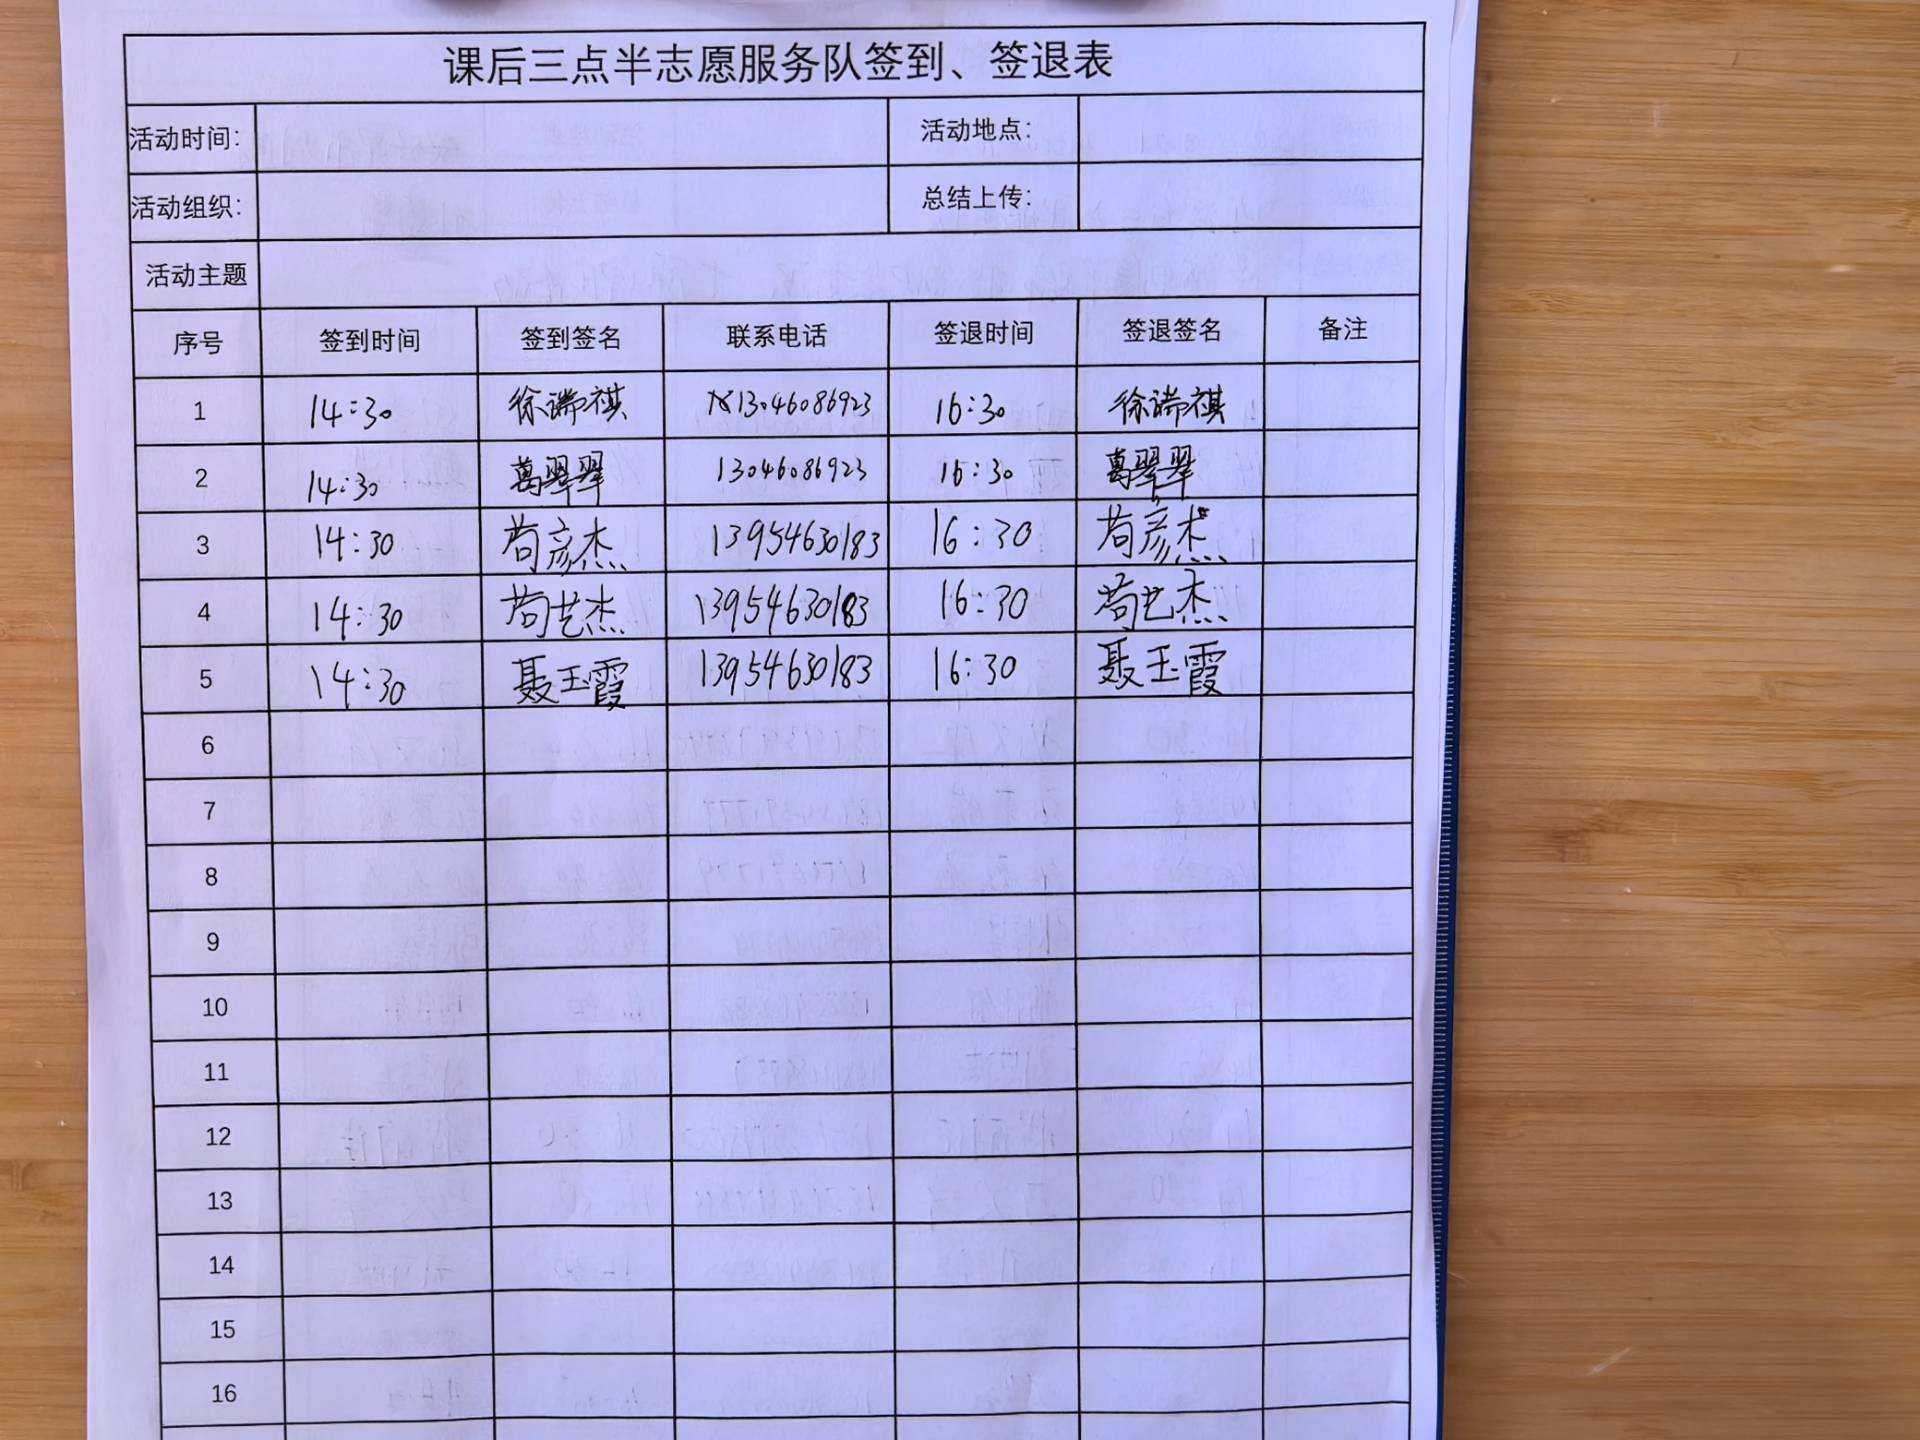 课后三点半志愿服务队签到、签退表
活动时间： 活动地点：
活动组织： 总结上传：
活动主题
序号 签到时间 签到签名 联系电话 签退时间 签退签名 备注
1 14:30 徐瑞祺 13046086923 16:30 徐瑞祺
2 14:30 萬翠翠 13046086923 16:30 萬翠翠
3 14:30 苟彦杰 13954630183 16:30 苟彦杰
4 14:30 苟艺杰 13954630183 16:30 苟艺杰
5 14:30 聂玉霞 13954630183 16:30 聂玉霞
6
7
8
9
10
11
12
13
14
15
16